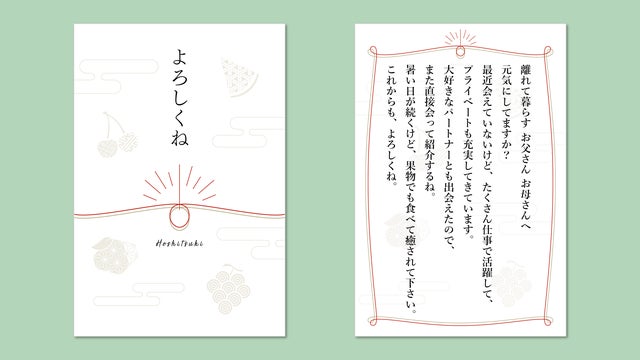 よろしくね
Hoshitsuki
離れて暮らす お父さん お母さんへ
元気にしてますか?
最近会えていないけど、たくさん仕事で活躍して、
プライベートも充実してきています。
大好きなパートナーとも出会えたので、
また直接会って紹介するね。
暑い日が続くけど、果物でも食べて癒されて下さい。
これからも、よろしくね。